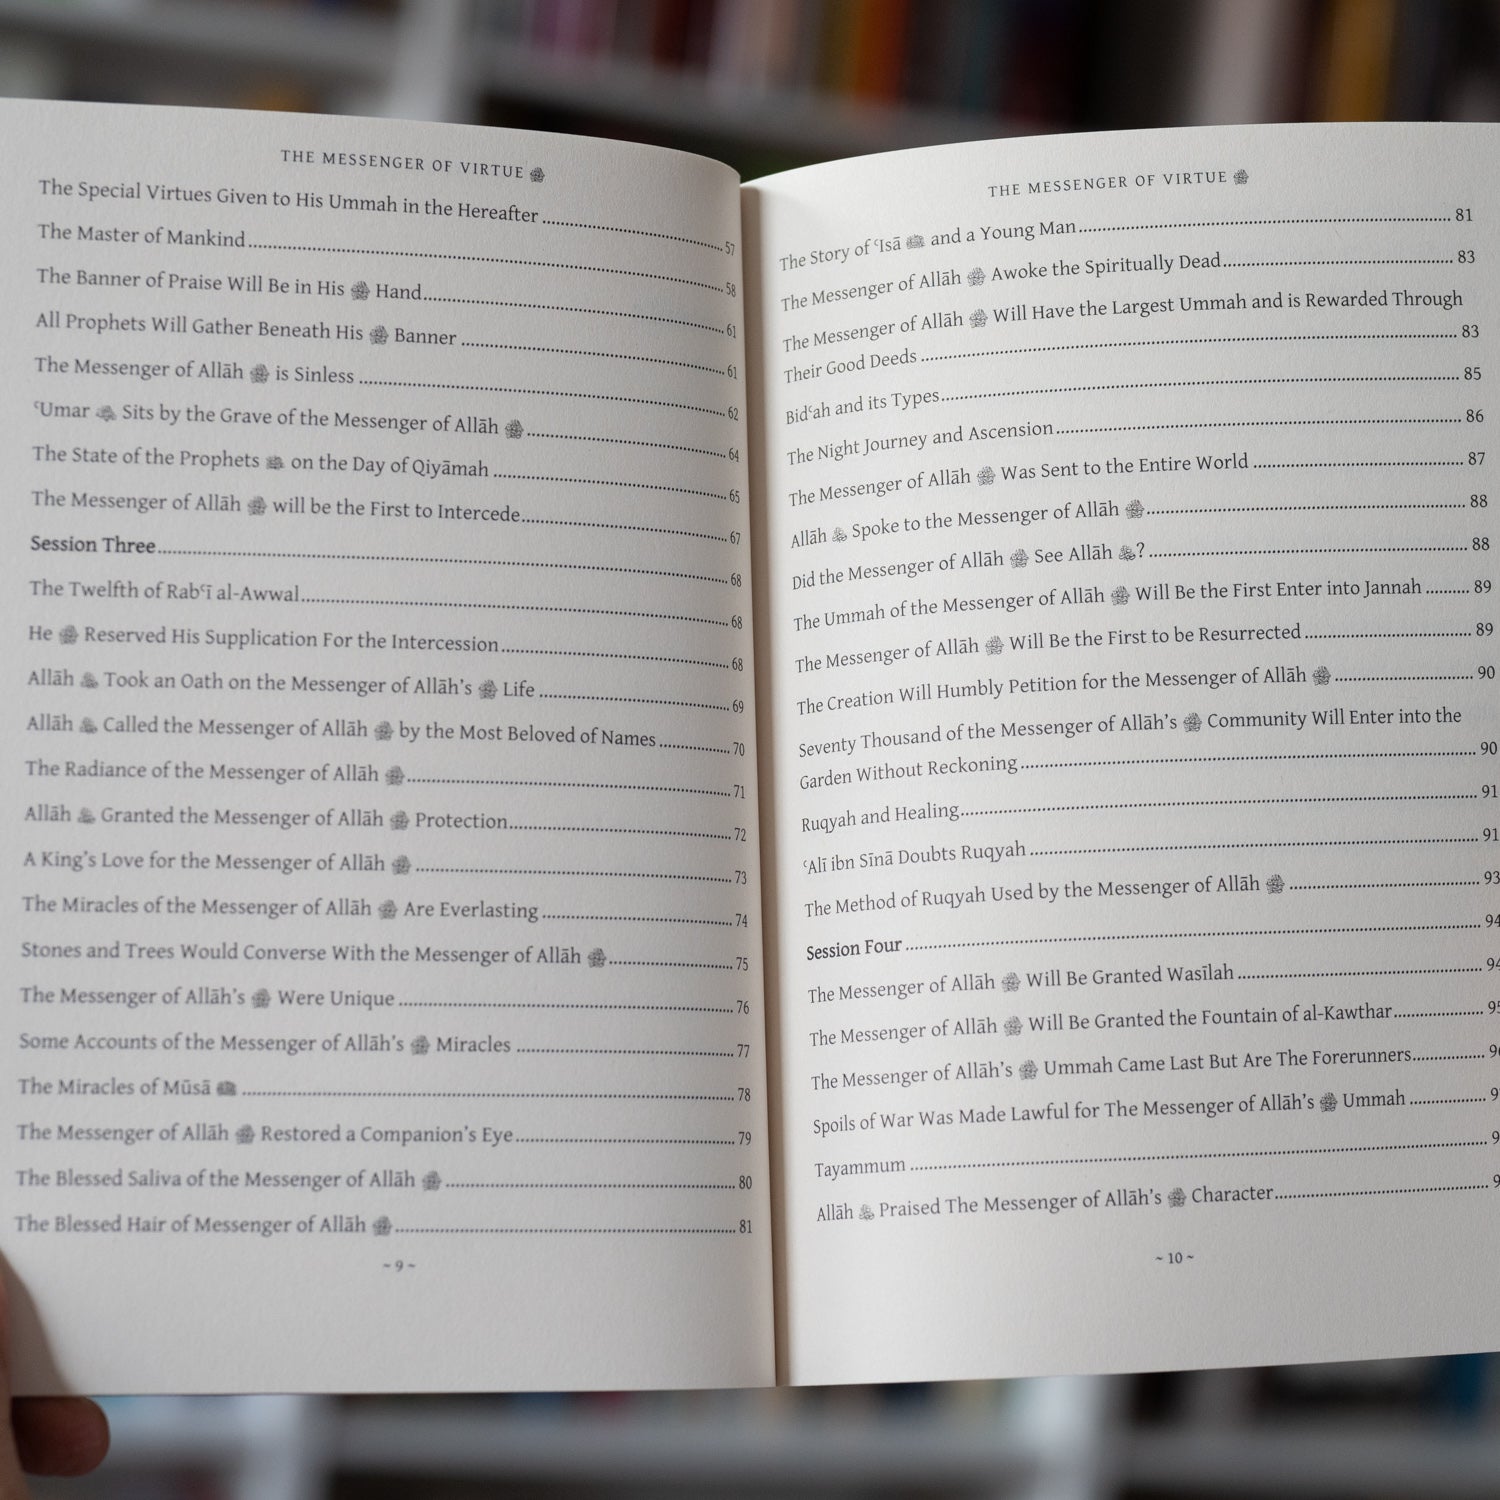 THE MESSENGER OF VIRTUE ﷺ
The Special Virtues Given to His Ummah in the Hereafter 57
The Master of Mankind 58
The Banner of Praise Will Be in His ﷺ Hand 61
All Prophets Will Gather Beneath His ﷺ Banner 61
The Messenger of Allāh ﷺ is Sinless 62
ʿUmar Sits by the Grave of the Messenger of Allāh ﷺ 64
The State of the Prophets on the Day of Qiyāmah 65
The Messenger of Allāh ﷺ will be the First to Intercede 67
Session Three 68
The Twelfth of Rabʿī al-Awwal 68
He ﷺ Reserved His Supplication For the Intercession 68
Allāh Took an Oath on the Messenger of Allāh's ﷺ Life 69
Allāh Called the Messenger of Allāh ﷺ by the Most Beloved of Names 70
The Radiance of the Messenger of Allāh ﷺ 71
Allāh Granted the Messenger of Allāh ﷺ Protection 72
A King's Love for the Messenger of Allāh ﷺ 73
The Miracles of the Messenger of Allāh ﷺ Are Everlasting 74
Stones and Trees Would Converse With the Messenger of Allāh ﷺ 75
The Messenger of Allāh's ﷺ Were Unique 76
Some Accounts of the Messenger of Allāh's ﷺ Miracles 77
The Miracles of Mūsā 78
The Messenger of Allāh ﷺ Restored a Companion's Eye 79
The Blessed Saliva of the Messenger of Allāh ﷺ 80
The Blessed Hair of Messenger of Allāh ﷺ 81
~ 9 ~
THE MESSENGER OF VIRTUE ﷺ
The Story of ʿIsā and a Young Man 81
The Messenger of Allāh ﷺ Awoke the Spiritually Dead 83
The Messenger of Allāh ﷺ Will Have the Largest Ummah and is Rewarded Through
Their Good Deeds 83
Bidʿah and its Types 85
The Night Journey and Ascension 86
The Messenger of Allāh ﷺ Was Sent to the Entire World 87
Allāh Spoke to the Messenger of Allāh ﷺ 88
Did the Messenger of Allāh ﷺ See Allāh ? 88
The Ummah of the Messenger of Allāh ﷺ Will Be the First Enter into Jannah 89
The Messenger of Allāh ﷺ Will Be the First to be Resurrected 89
The Creation Will Humbly Petition for the Messenger of Allāh ﷺ 90
Seventy Thousand of the Messenger of Allāh's ﷺ Community Will Enter into the
Garden Without Reckoning 90
Ruqyah and Healing 91
ʿAlī ibn Sīnā Doubts Ruqyah 91
The Method of Ruqyah Used by the Messenger of Allāh ﷺ 93
Session Four 94
The Messenger of Allāh ﷺ Will Be Granted Wasīlah 94
The Messenger of Allāh ﷺ Will Be Granted the Fountain of al-Kawthar 95
The Messenger of Allāh's ﷺ Ummah Came Last But Are The Forerunners
Spoils of War Was Made Lawful for The Messenger of Allāh's ﷺ Ummah
Tayammum
Allāh Praised The Messenger of Allāh's ﷺ Character
~ 10 ~